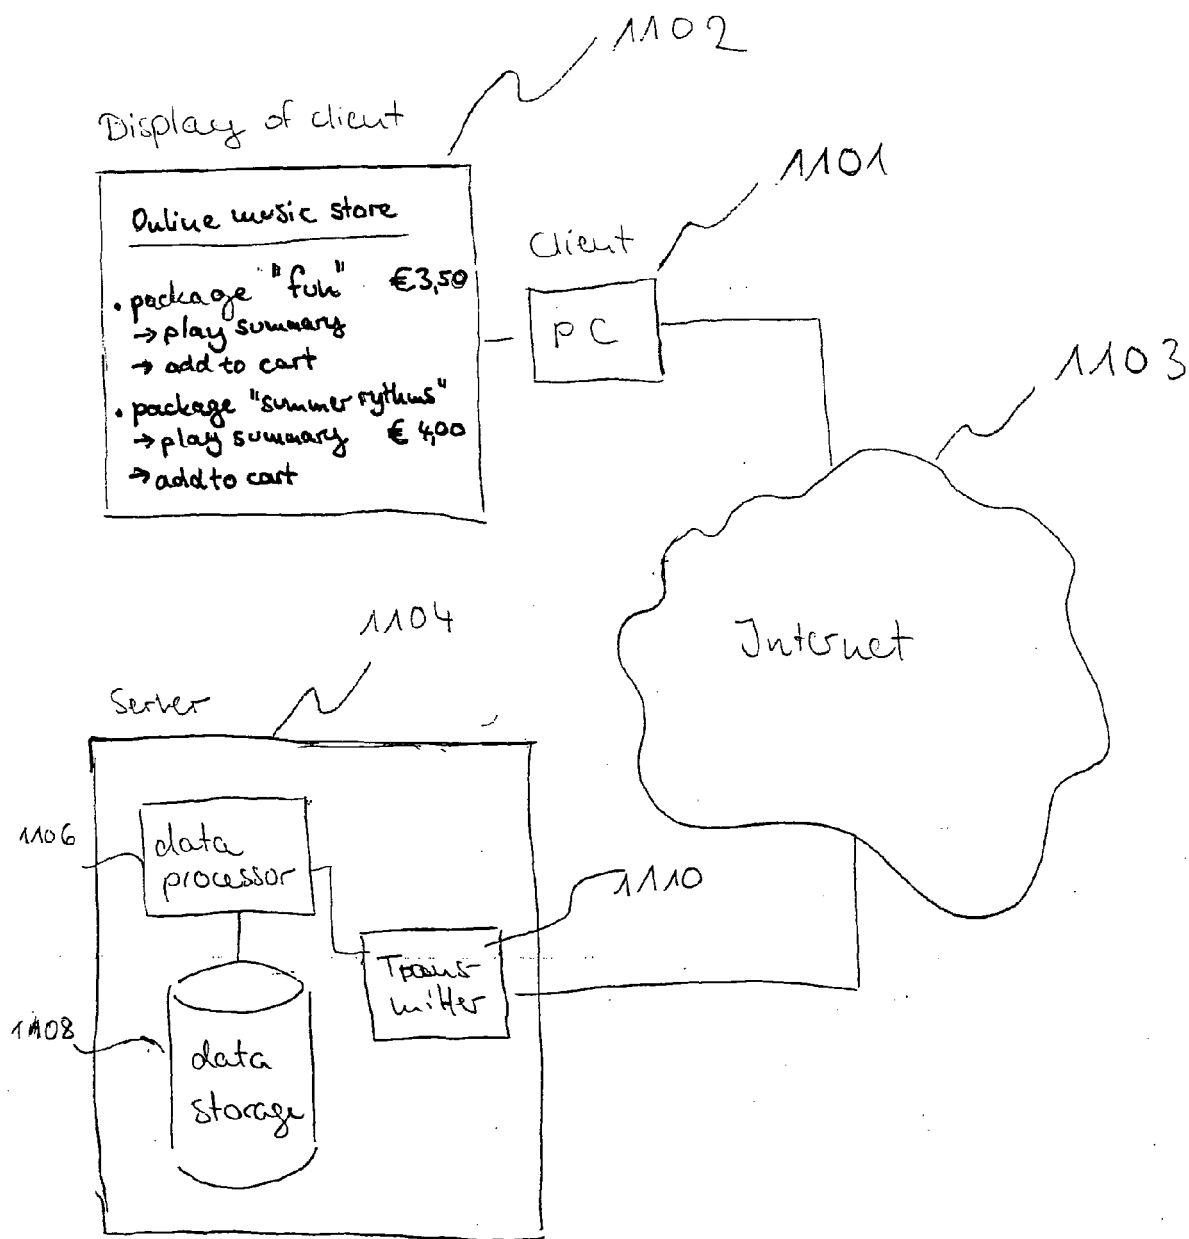 1102
Display of client
1101
Online music store
Client
• package "fun" €3,50
→ play summary
→ add to cart
PC
1103
• package "summer rythms"
→ play summary € 4,00
→ add to cart
1104
Internet
Server
1106
data
processor
1110
Trans-
mitter
1108
data
storage